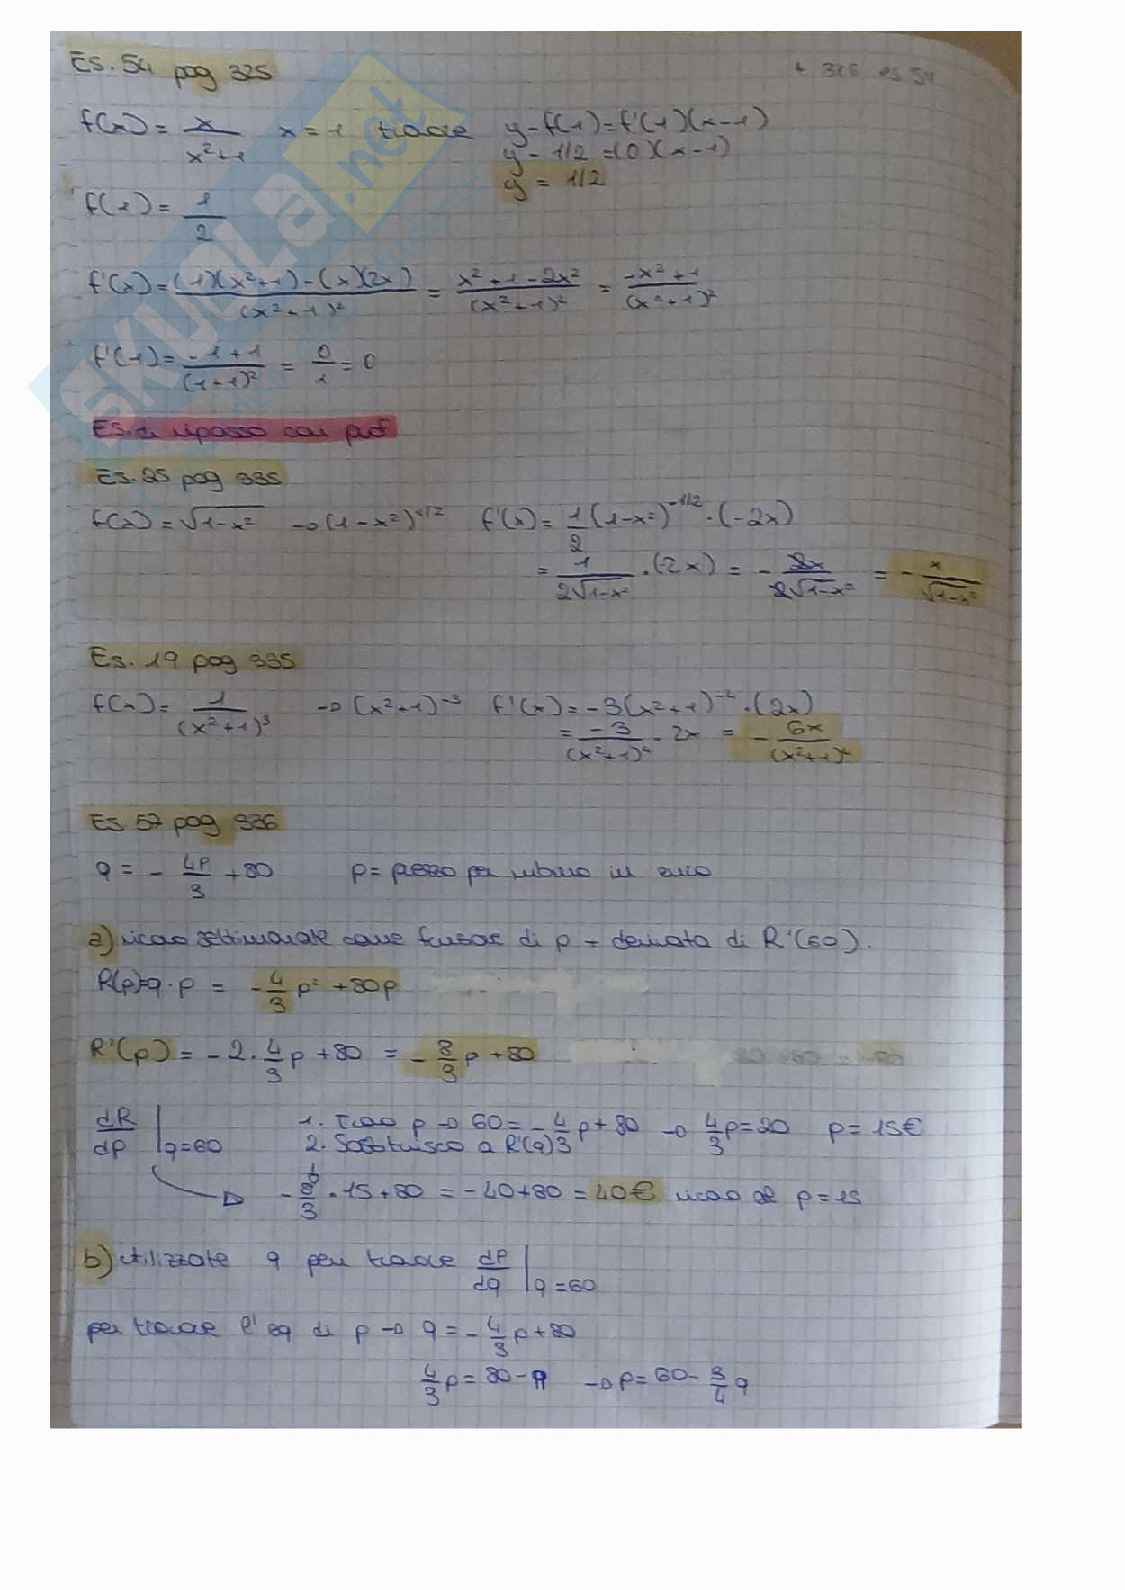 Es. 54 pag 325
f(x) = x/(x²+1)   x = 1   trovare   y - f(1) = f'(1)(x-1)
y - 1/2 = (0)(x-1)
y = 1/2
f(1) = 1/2
f'(x) = ((1)(x²+1) - (x)(2x))/(x²+1)² = (x²+1-2x²)/(x²+1)² = (-x²+1)/(x²+1)²
f'(1) = (-1+1)/(1+1)² = 0/1 = 0
Es. di ripasso con prof
Es. 25 pag 335
f(x) = √(1-x²) → (1-x²)^(1/2)   f'(x) = 1/2 (1-x²)^(-1/2) · (-2x)
= 1/(2√(1-x²)) · (-2x) = - 2x/(2√(1-x²)) = - x/√(1-x²)
Es. 19 pag 335
f(x) = 1/(x²+1)³ → (x²+1)^(-3)   f'(x) = -3(x²+1)^(-4) · (2x)
= -3/(x²+1)⁴ · 2x = - 6x/(x²+1)⁴
Es 57 pag 336
q = - 4p/3 + 80   p = prezzo per rubino in euro
a) ricavo settimanale come funzione di p + derivata di R'(60).
R(p) = q · p = - 4/3 p² + 80p
R'(p) = -2 · 4/3 p + 80 = - 8/3 p + 80
dR/dp | q=60   1. Trovo p → 60 = - 4/3 p + 80 → 4/3 p = 20   p = 15€
2. Sostituisco a R'(q)
- 8/3 · 15 + 80 = -40 + 80 = 40€ ricavo se p = 15
b) utilizzate q per trovare dp/dq | q=60
per trovare l'eq di p → q = - 4/3 p + 80
4/3 p = 80 - q → p = 60 - 3/4 q
SKUOLA.net